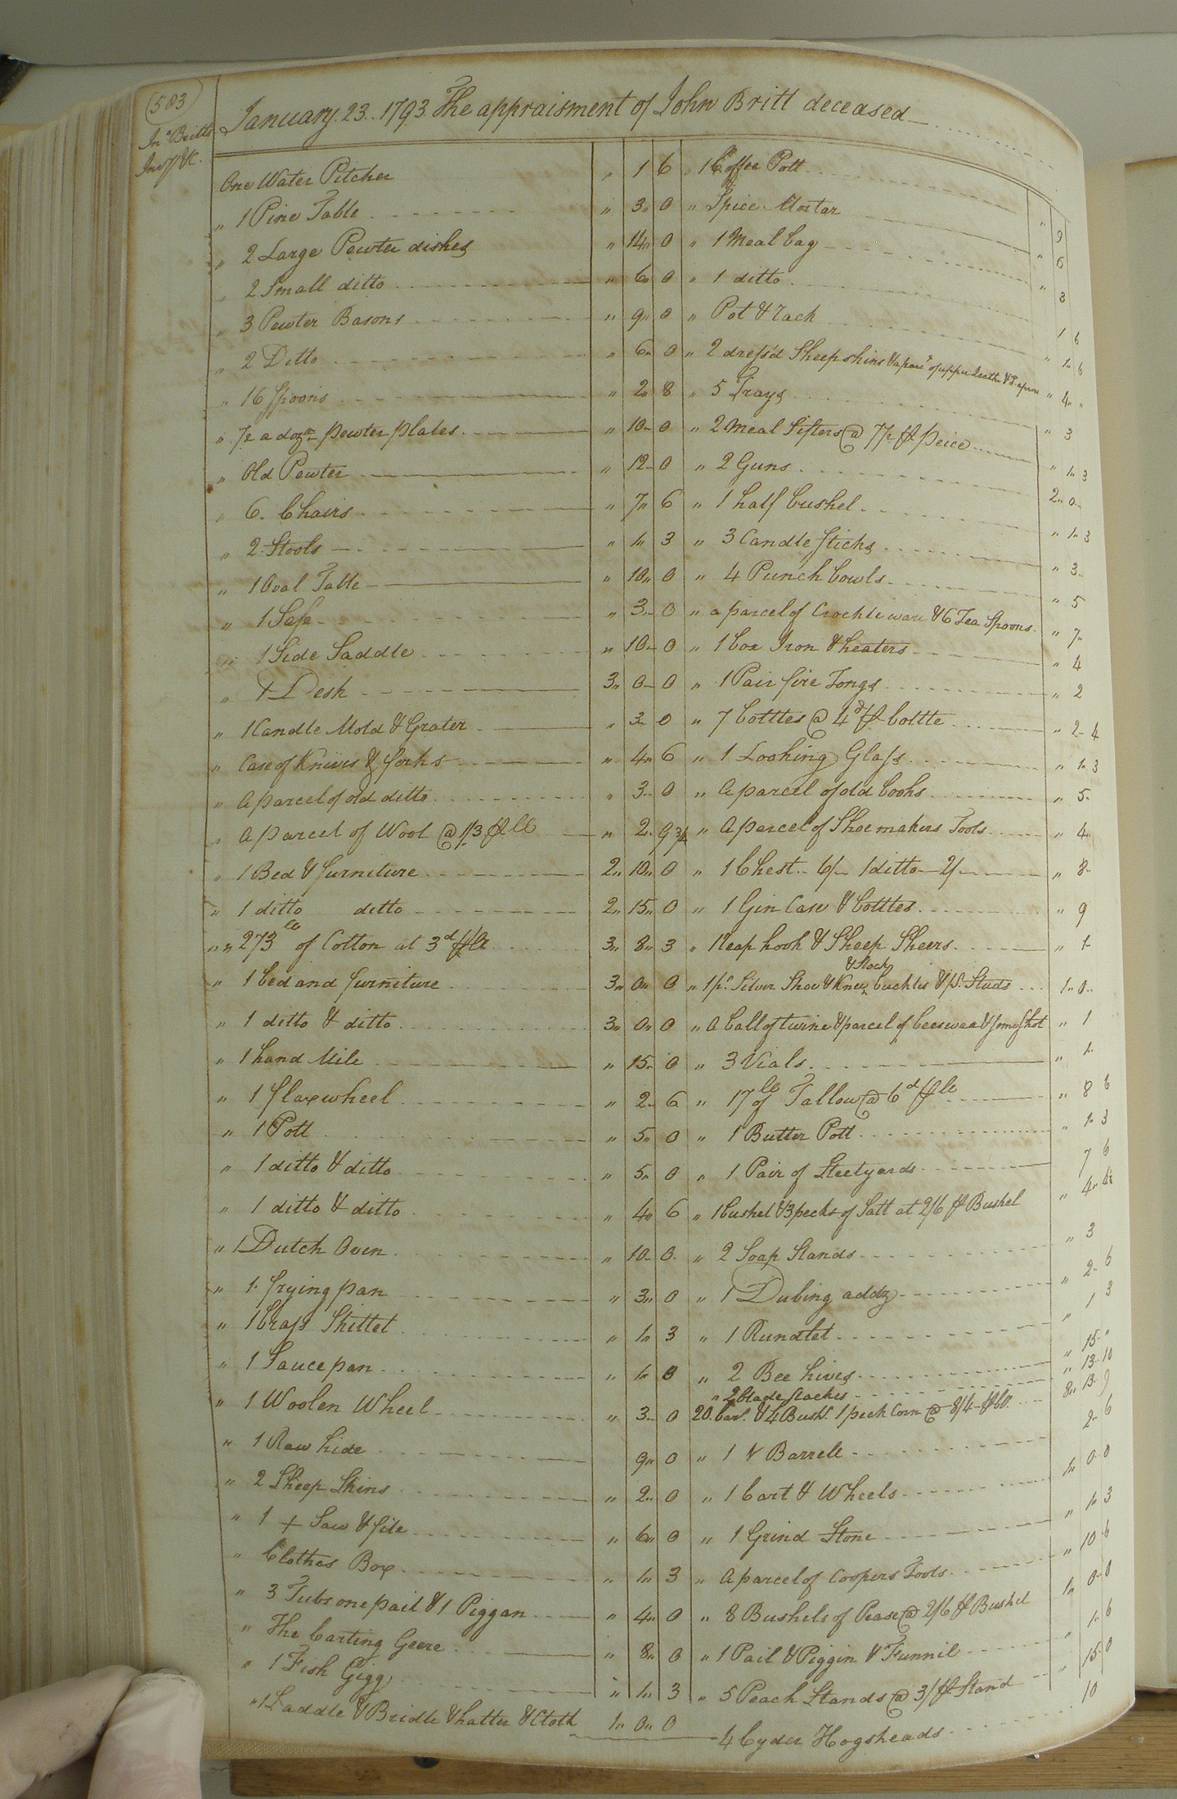 (503)
Jno Britts
Invy &c.
January. 23.. 1793 The appraisment of John Britt deceased
One Water Pitcher „ 1 6
„ 1 Pine Table „ 3„ 0
„ 2 Large Pewter dishes „ 14„ 0
„ 2 Small ditto „ 6„ 0
„ 3 Pewter Basons „ 9„ 0
„ 2 Ditto „ 6„ 0
„ 16 Spoons „ 2„ 8
„ pewter plates „ 10„ 0
„ Old Pewter „ 12„ 0
„ 6. Chairs „ 7„ 6
„ 2 Stools „ 1„ 3
„ 1 Oval Table „ 10„ 0
„ 1 Safe „ 3„ 0
„ 1 Side Saddle „ 10„ 0
„ 1 Desk 3„ 0„ 0
„ 1 Candle Mold & Grater „ 3„ 0
„ Case of Knives & forks „ 4„ 6
„ A parcel of old ditto „ 3„ 0
„ A parcel of Wool @ 1/3 ℔ lb „ 2„ 9 3/4
„ 1 Bed & furniture 2„ 10„ 0
„ 1 ditto ditto 2„ 15„ 0
„ „ 273 lb of Cotton at 3d ℔ lb 3„ 8„ 3
„ 1 bed and furniture 3„ 0„ 0
„ 1 ditto & ditto 3„ 0„ 0
„ 1 hand Mile „ 15„ 0
„ 1 flaxwheel „ 2„ 6
„ 1 Pott „ 5„ 0
„ 1 ditto & ditto „ 5„ 0
„ 1 ditto & ditto „ 4„ 6
„ 1 Dutch Oven „ 10„ 0
„ 1 frying pan „ 3„ 0
„ 1 brass Skillet „ 1„ 3
„ 1 Saucepan „ 1„ 0
„ 1 Woolen Wheel „ 3„ 0
„ 1 Raw hide 9„ 0
„ 2 Sheep Skins „ 2„ 0
„ 1 + Saw & file „ 6„ 0
„ Clothes Box „ 1„ 3
„ 3 Tubs one pail & 1 Piggan „ 4„ 0
„ The Carting Geere „ 8„ 0
„ 1 Fish Gigg „ 1„ 3
„ 1 Saddle & Bridle & halter & Cloth 1„ 0„ 0
„ 1 Coffee Pott „ 9
„ Spice Mortar „ 6
„ 1 Meal bag „ 3
„ 1 ditto 1 6
„ Pot & rack „ 1„ 6
„ 2 dress'd Sheepskins & a parcl of upper leather & „ 4„ „
„ 5 Trays „ 3
„ 2 Meal Sifters @ 7½ ℔ peice „ 1„ 3
„ 2 Guns 2„ 0„
„ 1 half bushel „ 1„ 3
„ 3 Candle sticks „ 3„
„ 4 Punch bowls „ 5
„ a parcel of Crockle ware & 6 Tea Spoons „ 7„
„ 1 box Iron & heaters „ 4
„ 1 Pair fire Tongs „ 2
„ 7 bottles @ 4d ℔ bottle „ 2„ 4
„ 1 Looking Glass „ 1„ 3
„ A parcel of old books „ 5„
„ A parcel of Shoemakers Tools „ 4
„ 1 Chest.. 6/ 1 ditto 2/ „ 8„
„ 1 Gin Case & bottles „ 9
„ 1 Reap hook & Sheep Sheers „ 1„
& Stock
„ 1 pr Silver Shoe & Knee buckles & pr Studs 1„ 0„
„ A ball of twine & parcel of beeswax & some Shot „ 1
„ 3 Vials „ 1„
„ 17 lb of Tallow @ 6d ℔ lb „ 8 6
„ 1 Butter Pott „ 1„ 3
„ 1 Pair of Steelyards 7 6
„ 1 bushel & 3 pecks of Salt at 2/6 ℔ Bushel „ 4„ 4½
„ 2 Soap Stands „ 3
„ 1 Dubing addz „ 2„ 6
„ 1 Rundlet „ 1 3
„ 2 Bee hives „ 15„ „
„ 2 blade stackes „ 13„ 10
20. barl. & 4 Bushl. 1 peck Corn @ 8/4 ℔ bb. 8„ 13„ 9
„ 1 Barrell 2„ 6
„ 1 Cart & Wheels 1„ 0„ 0
„ 1 Grind Stone „ 1„ 3
„ A parcel of Coopers Tools „ 10 6
„ 8 Bushels of Pease @ 2/6 ℔ Bushel 1„ 0„ 0
„ 1 Pail & Piggin & Funnil „ 1„ 6
„ 5 Peach Stands @ 3/ ℔ Stand „ 15„ 0
4 Cyder Hogsheads 10